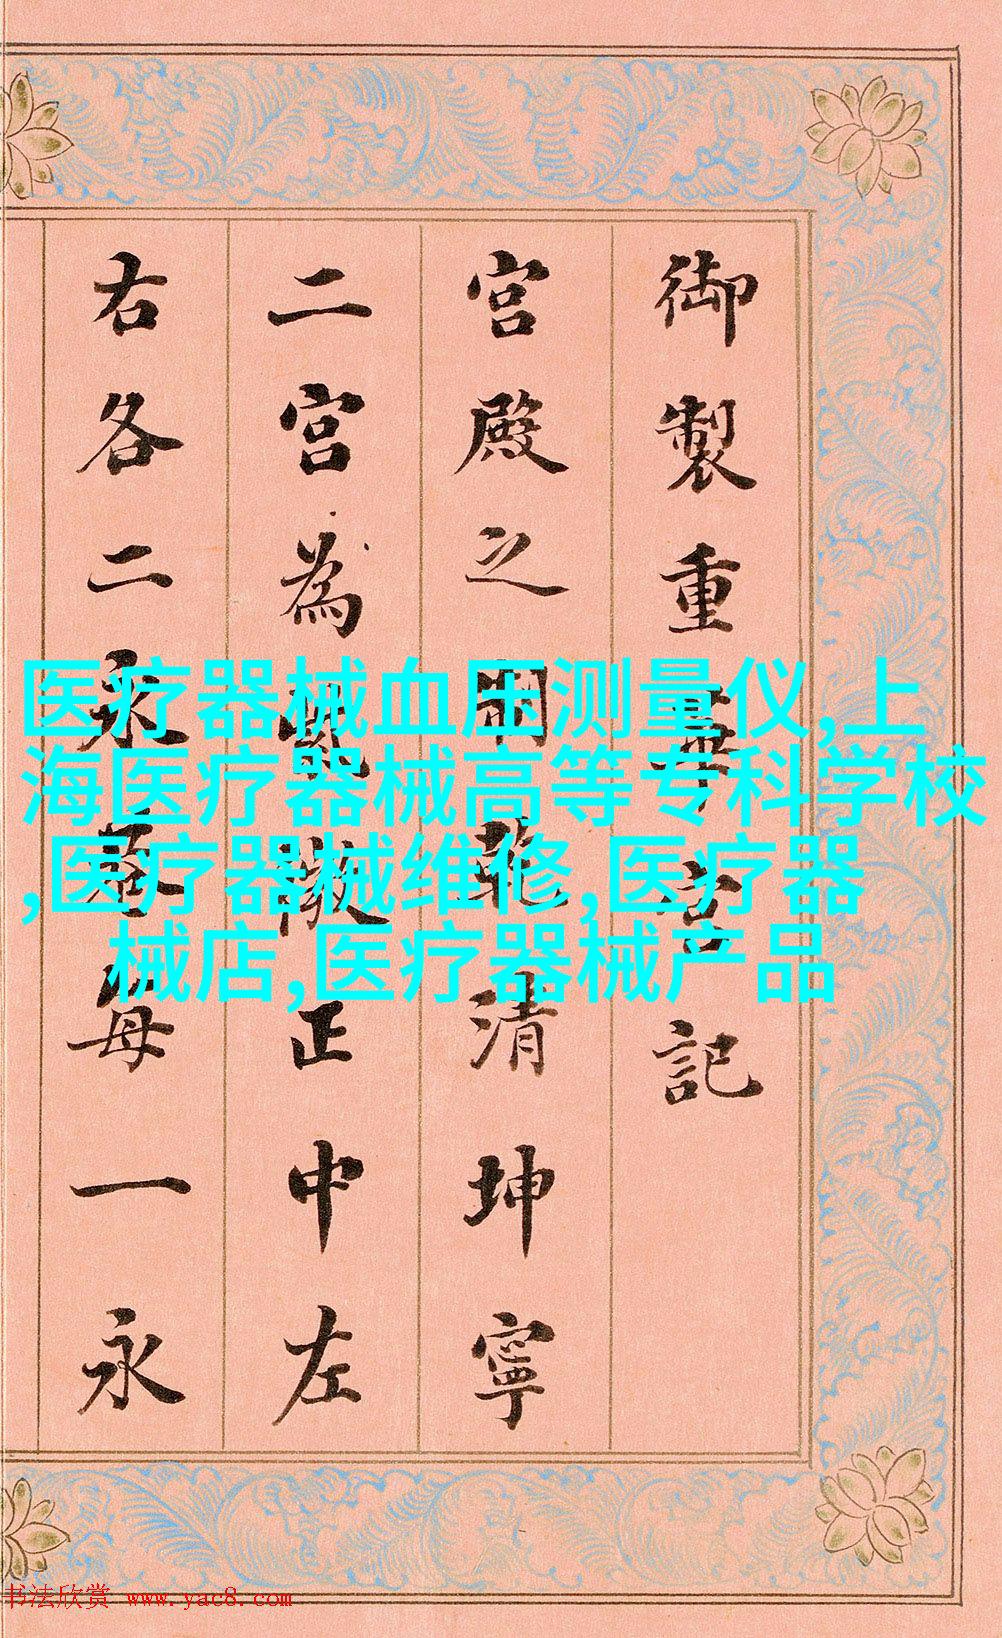 御製重華宮記
宮殿之乾清坤寧
二宮為微正中左
右各二永巷每一永
医疗器械血压测量仪,上
海医疗器械高等专科学校
,医疗器械维修,医疗器
械店,医疗器械产品
书法欣赏 www.yac8.com